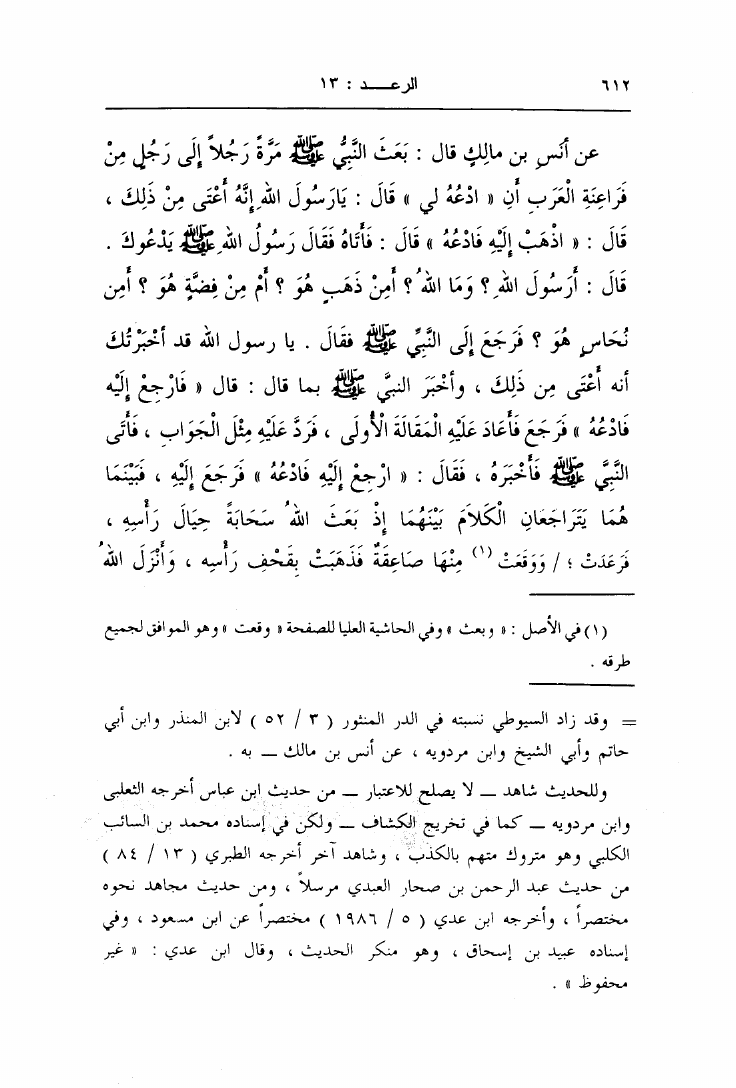 ٦١٢ الرعـــد : ١٣
عن أَنَسِ بن مالِكٍ قال : بَعَثَ النَّبِيُّ ﷺ مَرَّةً رَجُلاً إِلَى رَجُلٍ مِنْ
فَرَاعِنَةِ الْعَرَبِ أَنِ « ادْعُهُ لي » قَالَ : يَارَسُولَ اللهِ إِنَّهُ أَعْتَى مِنْ ذَلِكَ ،
قَالَ : « اذْهَبْ إِلَيْهِ فَادْعُهُ » قَالَ : فَأَتَاهُ فَقَالَ رَسُولُ اللهِ ﷺ يَدْعُوكَ .
قَالَ : أَرَسُولَ اللهِ ؟ وَمَا اللهُ ؟ أَمِنْ ذَهَبٍ هُوَ ؟ أَمْ مِنْ فِضَّةٍ هُوَ ؟ أَمِن
نُحَاسٍ هُوَ ؟ فَرَجَعَ إِلَى النَّبِيِّ ﷺ فقَالَ . يا رسول الله قد أخْبَرْتُكَ
أنه أَعْتَى مِن ذَلِكَ ، وأخْبَرَ النبيَّ ﷺ بما قال : قال « فَارْجِعْ إِلَيْه
فَادْعُهُ » فَرَجَعَ فَأَعَادَ عَلَيْهِ الْمَقَالَةَ الْأُولَى ، فَرَدَّ عَلَيْهِ مِثْلَ الْجَوَابِ ، فَأَتَى
النَّبِيَّ ﷺ فَأَخْبَرَهُ ، فَقَالَ : « ارْجِعْ إِلَيْهِ فَادْعُهُ » فَرَجَعَ إِلَيْهِ ، فَبَيْنَمَا
هُمَا يَتَرَاجَعَانِ الْكَلاَمَ بَيْنَهُمَا إِذْ بَعَثَ اللهُ سَحَابَةً حِيَالَ رَأْسِهِ ،
فَرَعَدَتْ ؛ / وَوَقَعَتْ (١) مِنْهَا صَاعِقَةٌ فَذَهَبَتْ بِقَحْفِ رَأْسِه ، وَأَنْزَلَ اللهُ
(١) في الأصل : « وبعث » وفي الحاشية العليا للصفحة « وقعت » وهو الموافق لجميع
طرقه .
= وقد زاد السيوطي نسبته في الدر المنثور ( ٣ / ٥٢ ) لابن المنذر وابن أبي
حاتم وأبي الشيخ وابن مردويه ، عن أنس بن مالك ــ به .
وللحديث شاهد ــ لا يصلح للاعتبار ــ من حديث ابن عباس أخرجه الثعلبى
وابن مردويه ــ كما في تخريج الكشاف ــ ولكن في إسناده محمد بن السائب
الكلبي وهو متروك متهم بالكذب ، وشاهد آخر أخرجه الطبري ( ١٣ / ٨٤ )
من حديث عبد الرحمن بن صحار العبدي مرسلاً ، ومن حديث مجاهد نحوه
مختصراً ، وأخرجه ابن عدي ( ٥ / ١٩٨٦ ) مختصراً عن ابن مسعود ، وفي
إسناده عبيد بن إسحاق ، وهو منكر الحديث ، وقال ابن عدي : « غير
محفوظ » .